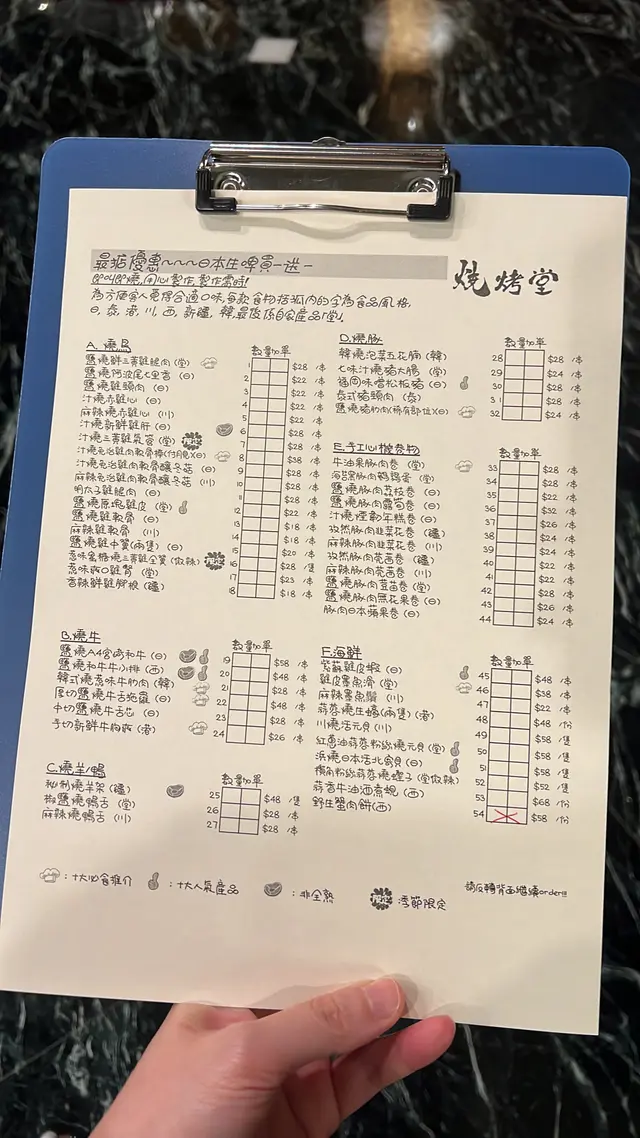 最抵優惠~~~日本生啤買一送一
即叫即燒,用心製作,製作需時!
為方便客人更得合適口味,每款食物括弧內的全為食品風格,
日,泰,港,川,西,新疆,韓,最後係自家產品「堂」.
燒烤堂
A. 燒鳥
數量加單
鹽燒鮮三黃雞腿肉 (堂) 1 $28 /本
鹽燒阿波尾七里香 (日) 2 $22 /本
鹽燒雞頸肉 (日) 3 $22 /本
汁燒赤雞心 (日) 4 $22 /本
麻辣燒赤雞心 (川) 5 $22 /本
汁燒新鮮雞肝 (日) 6 $28 /本
汁燒三黃雞 (堂) 7 $28 /本
汁燒免治雞肉軟骨棒(付月見)(日) 8 $38 /本
汁燒免治雞肉軟骨釀冬菇 (日) 9 $28 /本
麻辣免治雞肉軟骨釀冬菇 (川) 10 $28 /本
明太子雞腿肉 (日) 11 $28 /本
鹽燒原塊雞皮 (堂) 12 $22 /本
鹽燒雞軟骨 (日) 13 $18 /本
麻辣雞軟骨 (川) 14 $18 /本
鹽燒雞中翼(兩隻) (日) 15 $20 /本
惹味蜜糖燒三黃雞全翼 (微辣) 16 $28 /本
惹味 雞腎 (堂) 17 $23 /本
香辣鮮雞腳板 (疆) 18 $18 /本
B. 燒牛
數量加單
鹽燒A4宮崎和牛 (日) 19 $58 /本
鹽燒和牛牛小排 (西) 20 $48 /本
韓式燒惹味牛肋肉 (韓) 21 $28 /本
厚切鹽燒牛舌 (日) 22 $48 /本
中切鹽燒牛舌芯 (日) 23 $28 /本
手切新鮮牛 (港) 24 $26 /本
C. 燒羊/鴨
數量加單
秘制燒羊架 (疆) 25 $48 /隻
椒鹽燒鴨舌 (堂) 26 $28 /本
麻辣燒鴨舌 (川) 27 $28 /本
D. 燒豚
數量加單
韓燒泡菜五花腩 (韓) 28 $28 /本
七味汁燒豬大腸 (堂) 29 $24 /本
福岡味噌松板豬 (日) 30 $28 /本
泰式豬頸肉 (泰) 31 $28 /本
鹽燒豬肋肉(稀有部位)(日) 32 $24 /本
E. 手工心機卷物
數量加單
牛油果豚肉卷 (堂) 33 $28 /本
溶岩豚肉鵪鶉蛋 (堂) 34 $28 /本
鹽燒豚肉荔枝卷 (日) 35 $26 /本
鹽燒豚肉露筍卷 (日) 36 $32 /本
汁燒煙韌年糕卷 (日) 37 $26 /本
孜然豚肉韭菜花卷 (疆) 38 $24 /本
麻辣豚肉韭菜花卷 (川) 39 $24 /本
孜然豚肉芫茜卷 (疆) 40 $22 /本
麻辣豚肉芫茜卷 (川) 41 $22 /本
鹽燒豚肉豆苗卷 (堂) 42 $28 /本
鹽燒豚肉無花果卷 (日) 43 $26 /本
豚肉日本蘋果卷 (日) 44 $24 /本
F. 海鮮
數量加單
紫蘇雞皮蝦 (日) 45 $48 /本
雞皮墨魚滑 (堂) 46 $38 /本
麻辣墨魚鬚 (川) 47 $22 /本
蒜蓉燒生蠔(兩隻) (港) 48 $48 /份
川燒活元貝 (川) 49 $58 /隻
紅蔥油蒜蓉粉絲燒元貝 (堂) 50 $58 /隻
浜燒日本活北寄貝 (日) 51 $58 /隻
欖角粉絲蒜蓉燒蟶子 (堂微辣) 52 $52 /隻
蒜香牛油酒煮蜆 (西) 53 $68 /份
野生蟹肉餅(西) 54 $58 /份
:十大必食推介
:十大人氣產品
:非全熟
:季節限定
請反轉背面繼續order!!!